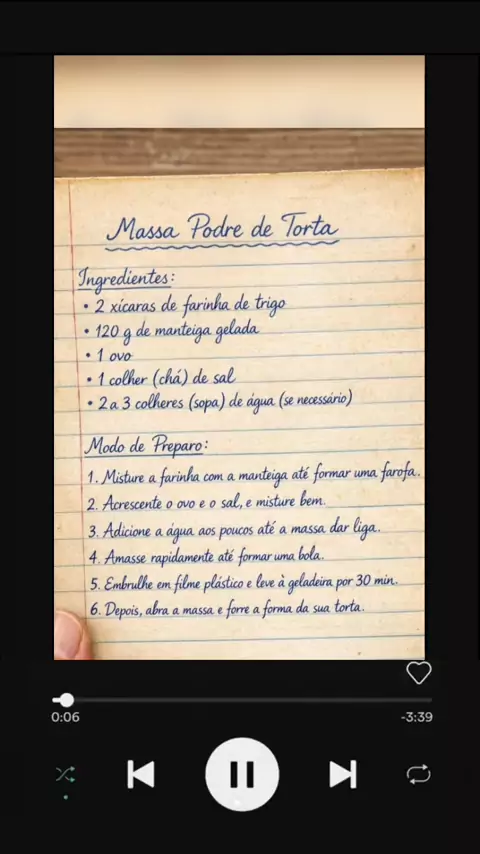 Massa Podre de Torta
Ingredientes:
• 2 xícaras de farinha de trigo
• 120 g de manteiga gelada
• 1 ovo
• 1 colher (chá) de sal
• 2 a 3 colheres (sopa) de água (se necessário)
Modo de Preparo:
1. Misture a farinha com a manteiga até formar uma farofa.
2. Acrescente o ovo e o sal, e misture bem.
3. Adicione a água aos poucos até a massa dar liga.
4. Amasse rapidamente até formar uma bola.
5. Embrulhe em filme plástico e leve à geladeira por 30 min.
6. Depois, abra a massa e forre a forma da sua torta.
0:06 -3:39